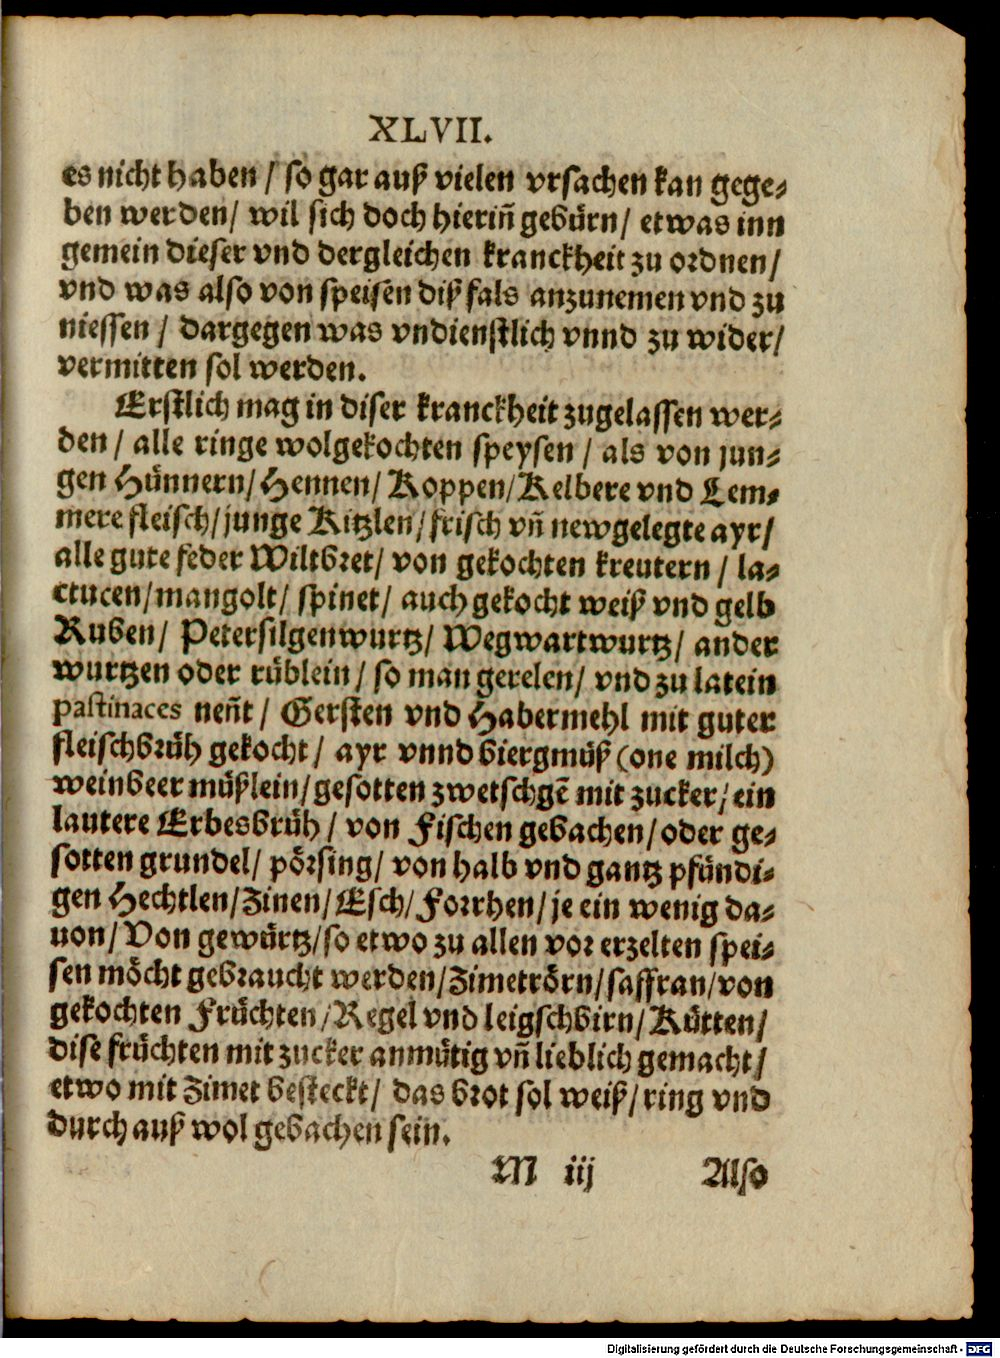 XLVII.
es nicht haben / so gar auß vielen vrsachen kan gege-
ben werden / wil sich doch hieriñ gebürn / etwas inn
gemein dieser vnd dergleichen kranckheit zu ordnen /
vnd was also von speisen diß fals anzunemen vnd zu
niessen / dargegen was vndienstlich vnnd zu wider /
vermitten sol werden.
Erstlich mag in diser kranckheit zugelassen wer-
den / alle ringe wolgekochten speysen / als von jun-
gen Hünnern / Hennen / Koppen / Kelbere vnd Lem-
mere fleisch / junge Kitzlen / frisch vñ newgelegte ayr /
alle gute feder Wiltbret / von gekochten kreutern / la-
ctucen / mangolt / spinet / auch gekocht weiß vnd gelb
Ruben / Petersilgenwurtz / Wegwartwurtz / ander
wurtzen oder rüblein / so man gerelen / vnd zu latein
pastinaces neñt / Gersten vnd Habermehl mit guter
fleischbrüh gekocht / ayr vnnd biergmüß (one milch)
weinbeer müßlein / gesotten zwetschgē mit zucker / ein
lautere Erbesbrüh / von Fischen gebachen / oder ge-
sotten grundel / pörsing / von halb vnd gantz pfündi-
gen Hechtlen / Zinen / Esch / Forrhen / je ein wenig da-
uon / Von gewürtz / so etwo zu allen vor erzelten spei-
sen möcht gebraucht werden / Zimetrörn / saffran / von
gekochten Früchten / Regel vnd leigschbirn / Kütten /
dise früchten mit zucker anmütig vñ lieblich gemacht /
etwo mit Zimet besteckt / das brot sol weiß / ring vnd
durch auß wol gebachen sein.
M iij Also
Digitalisierung gefördert durch die Deutsche Forschungsgemeinschaft - DFG